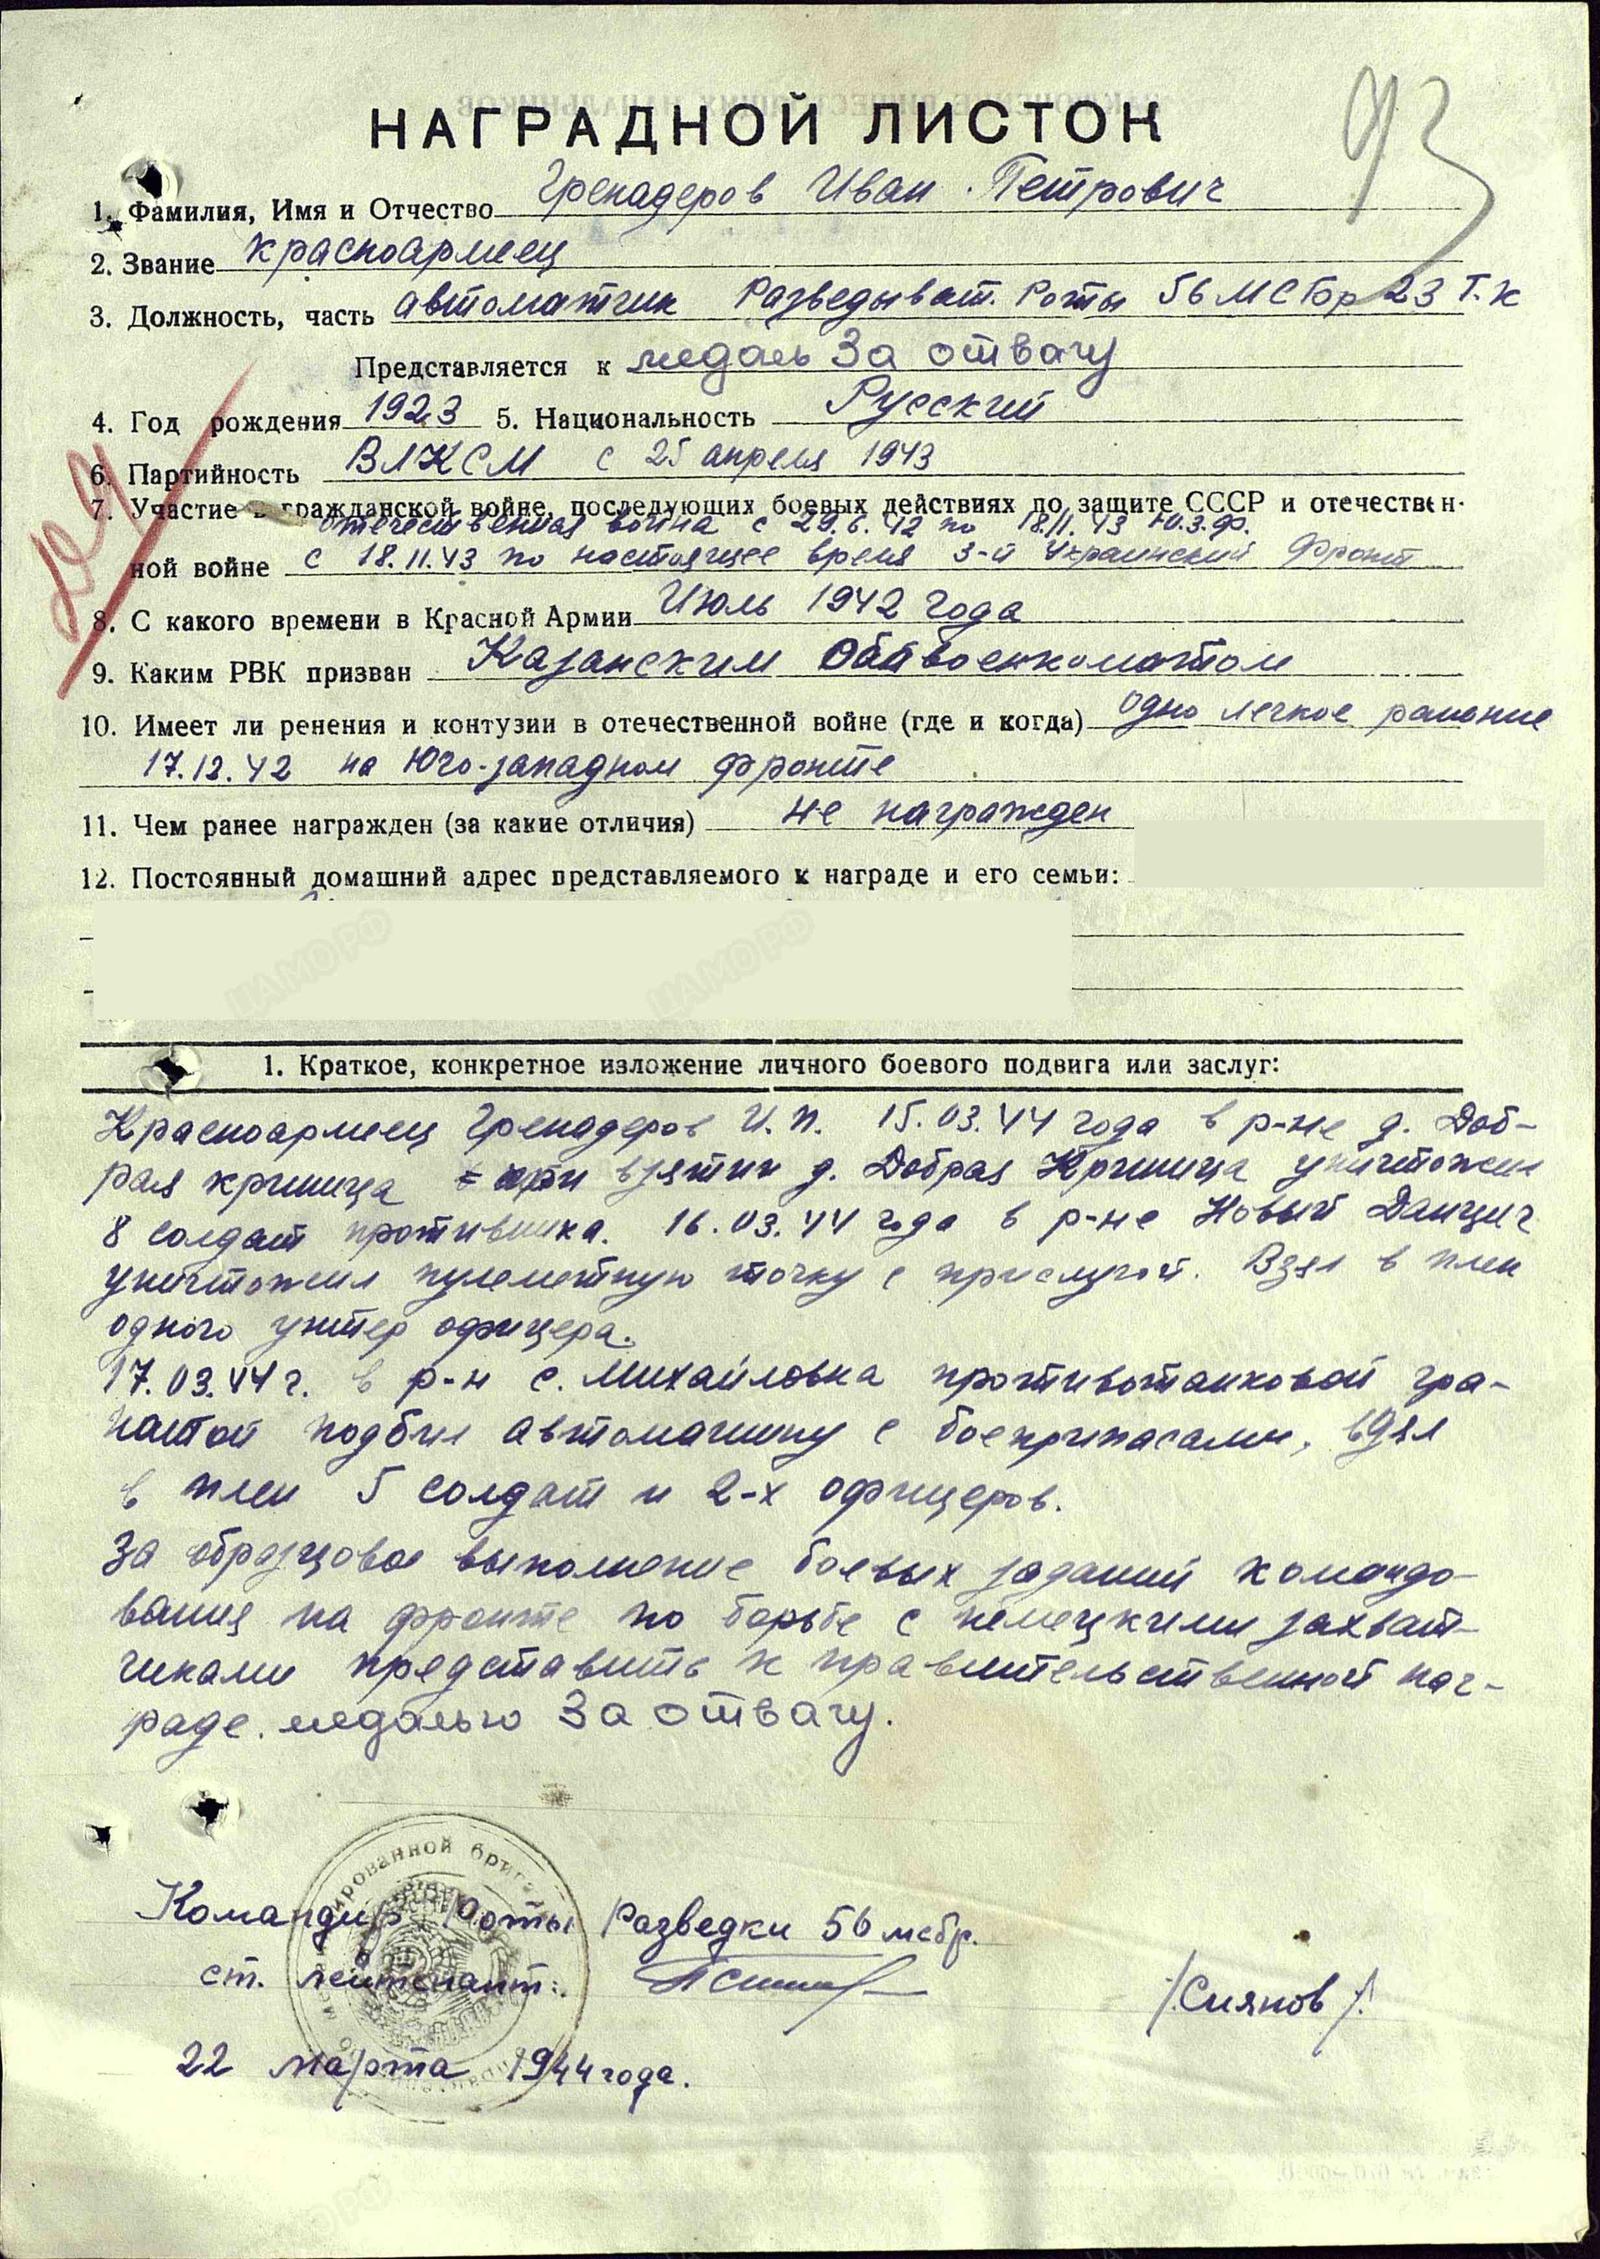 93
НАГРАДНОЙ ЛИСТОК
1. Фамилия, Имя и Отчество Гренадеров Иван Петрович
2. Звание красноармеец
3. Должность, часть автоматчик Разведыват. Роты 56 МСбр 23 Т.К
Представляется к медаль За отвагу
4. Год рождения 1923 5. Национальность Русский
6. Партийность ВЛКСМ с 25 апреля 1943
7. Участие в гражданской войне, последующих боевых действиях по защите СССР и отечествен-
отечественная война с 29.6.42 по 18.11.43 Ю.З.Ф.
ной войне с 18.11.43 по настоящее время 3-й Украинский Фронт
8. С какого времени в Красной Армии Июль 1942 года
9. Каким РВК призван Казанским Облвоенкоматом
10. Имеет ли ренения и контузии в отечественной войне (где и когда) одно легкое ранение
17.12.42 на Юго-западном фронте
11. Чем ранее награжден (за какие отличия) не награжден
12. Постоянный домашний адрес представляемого к награде и его семьи:
1. Краткое, конкретное изложение личного боевого подвига или заслуг:
Красноармеец Гренадеров И.П. 15.03.44 года в р-не д. Доб-
рая криница при взятии д. Добрая Криница уничтожил
8 солдат противника. 16.03.44 года в р-не Новый Данциг
уничтожил пулеметную точку с прислугой. Взял в плен
одного унтер офицера.
17.03.44 г. в р-н с. Михайловка противотанковой гра-
натой подбил автомашину с боеприпасами, взял
в плен 5 солдат и 2-х офицеров.
За образцовое выполнение боевых заданий командо-
вания на фронте по борьбе с немецкими захват-
чиками представить к правительственной наг-
раде. медалью За отвагу.
Командир Роты Разведки 56 мсбр.
ст. лейтенант:
/Сиянов/
22 марта 1944 года.